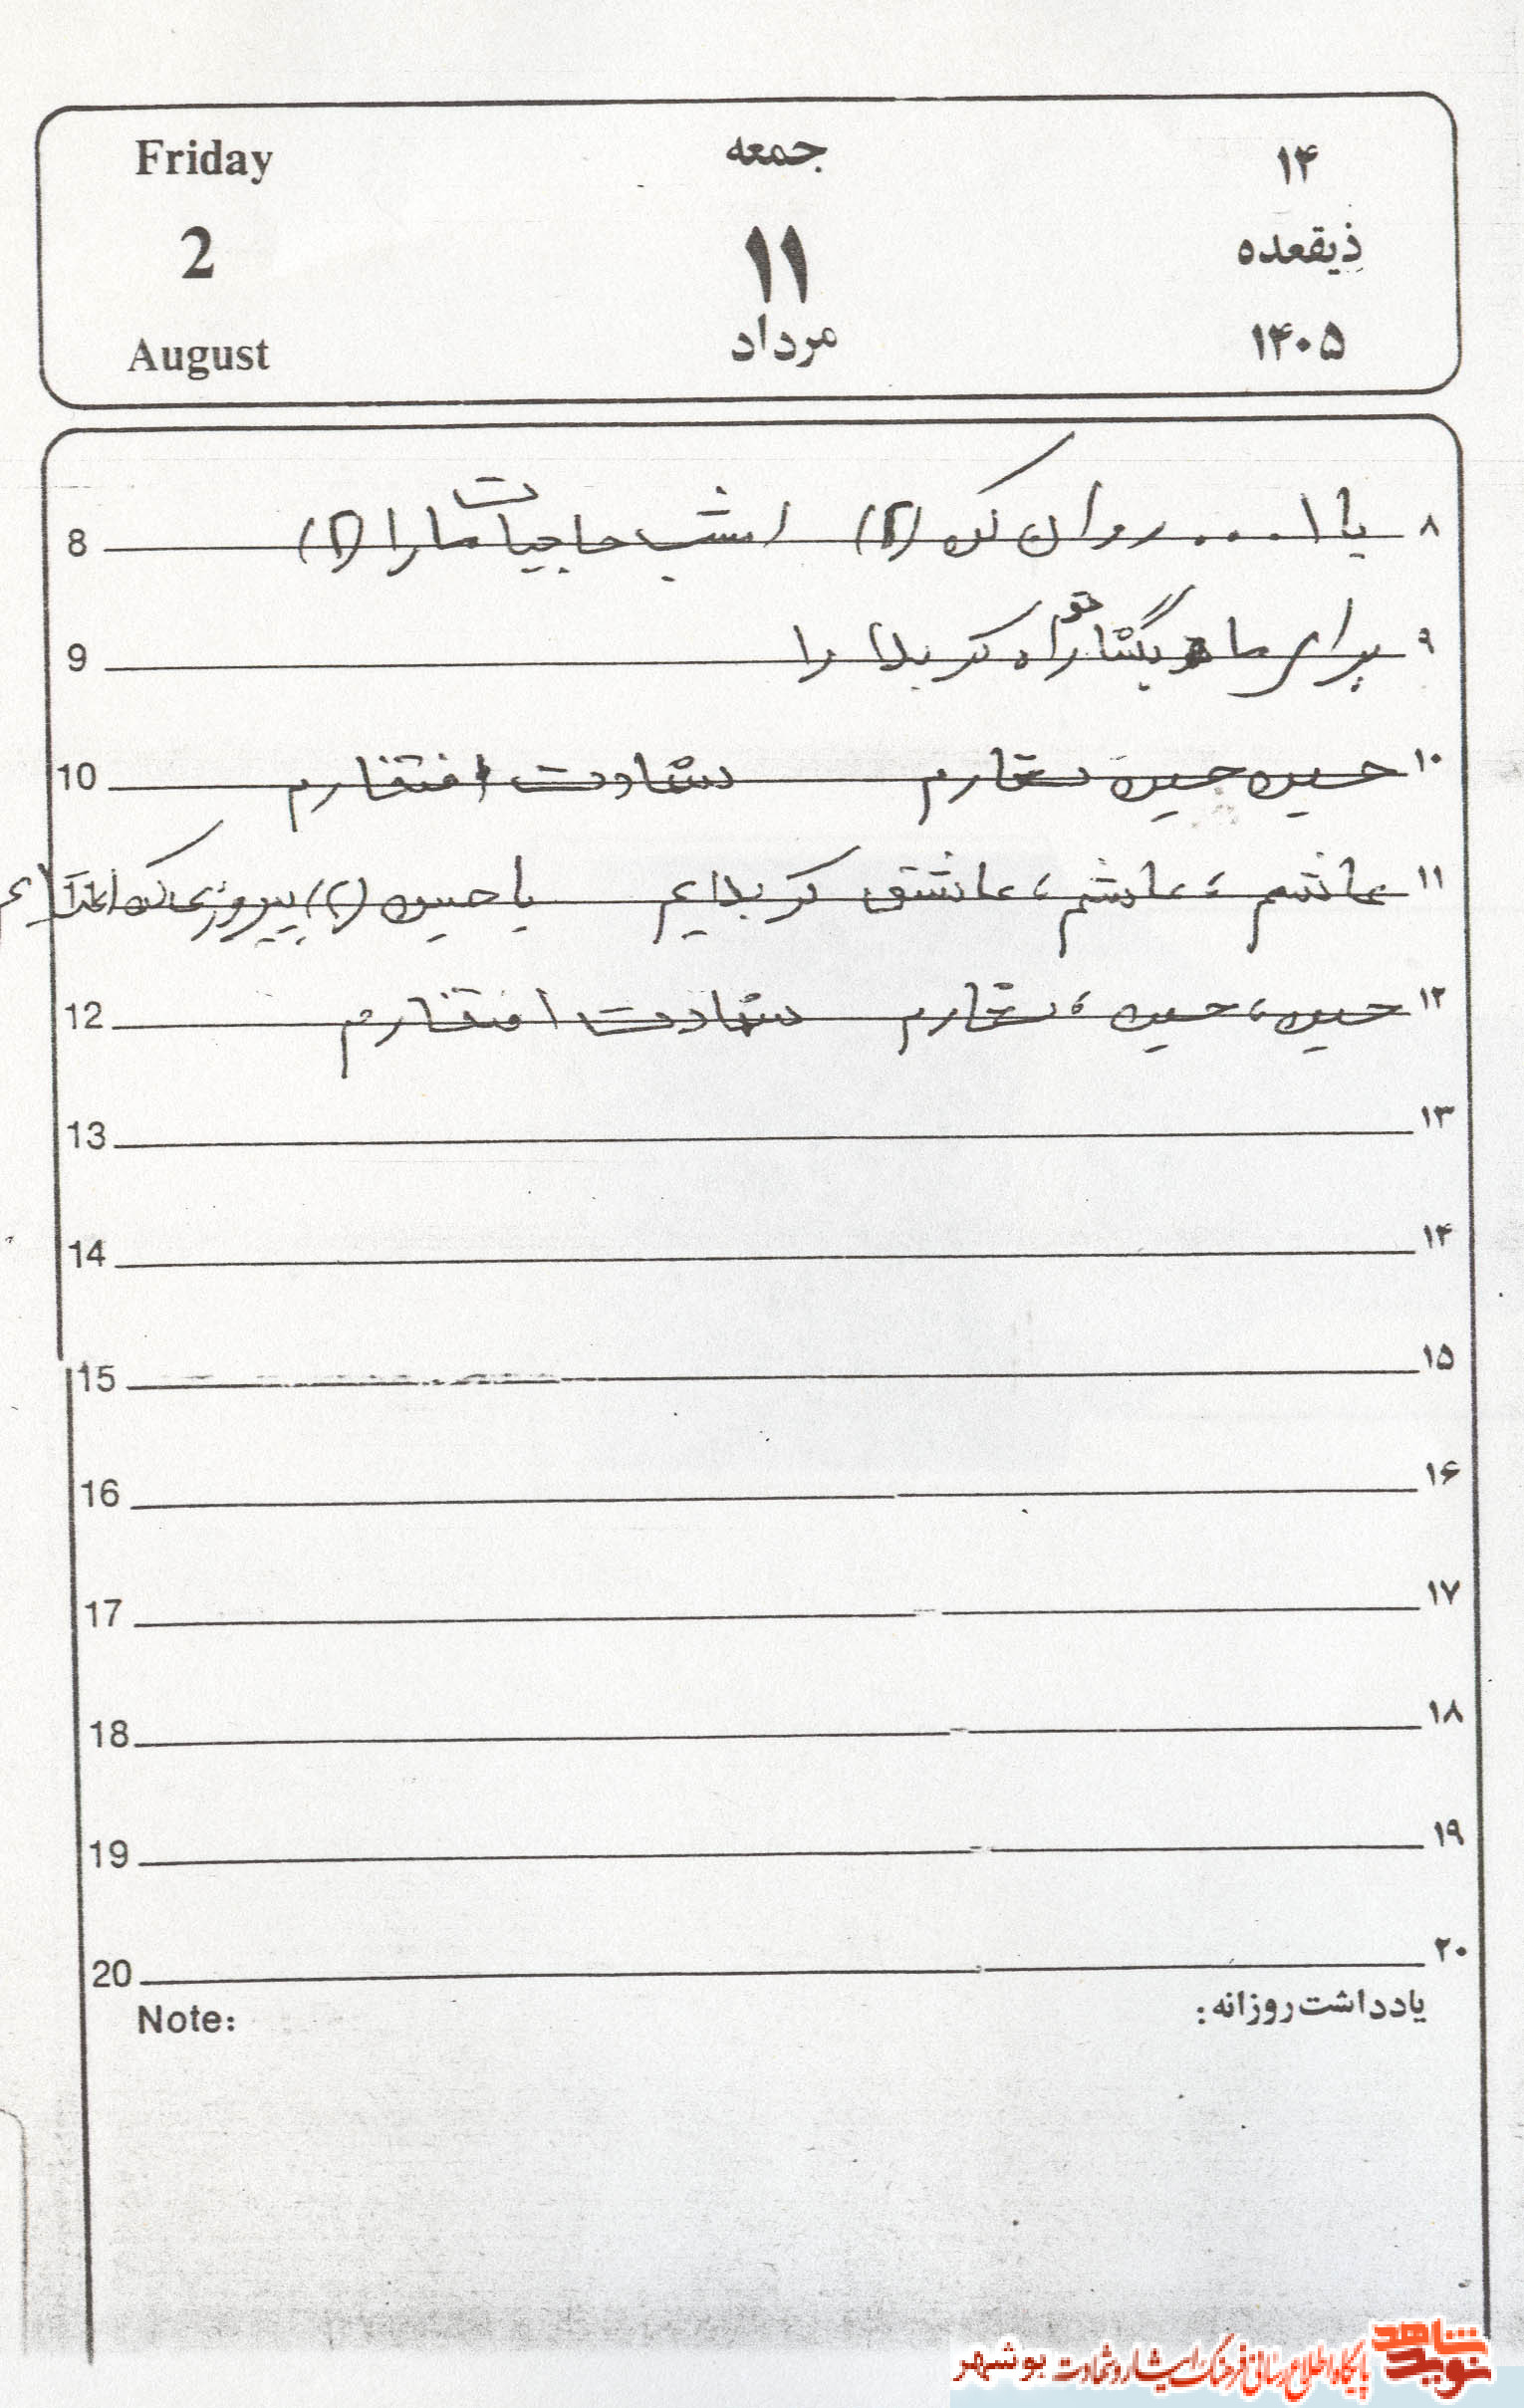 Friday جمعه ۱۴
2 ۱۱ ذیقعده
August مرداد ۱۴۰۵
8 یا ا.... روان کن (۲) امشب حاجیات ما را (۲) ۸
9 برای ما بگشا تو راه کربلا را ۹
10 حسین حسین شعارم شهادت افتخارم ۱۰
11 عاشقم، عاشقم، عاشق کربلایم یا حسین (۲) پیروزی کن ۱۱
12 حسین، حسین، شعارم شهادت افتخارم ۱۲
13 ۱۳
14 ۱۴
15 ۱۵
16 ۱۶
17 ۱۷
18 ۱۸
19 ۱۹
20 ۲۰
Note: یادداشت روزانه:
نوید شاهد پایگاه اطلاع رسانی فرهنگ ایثار و شهادت بوشهر